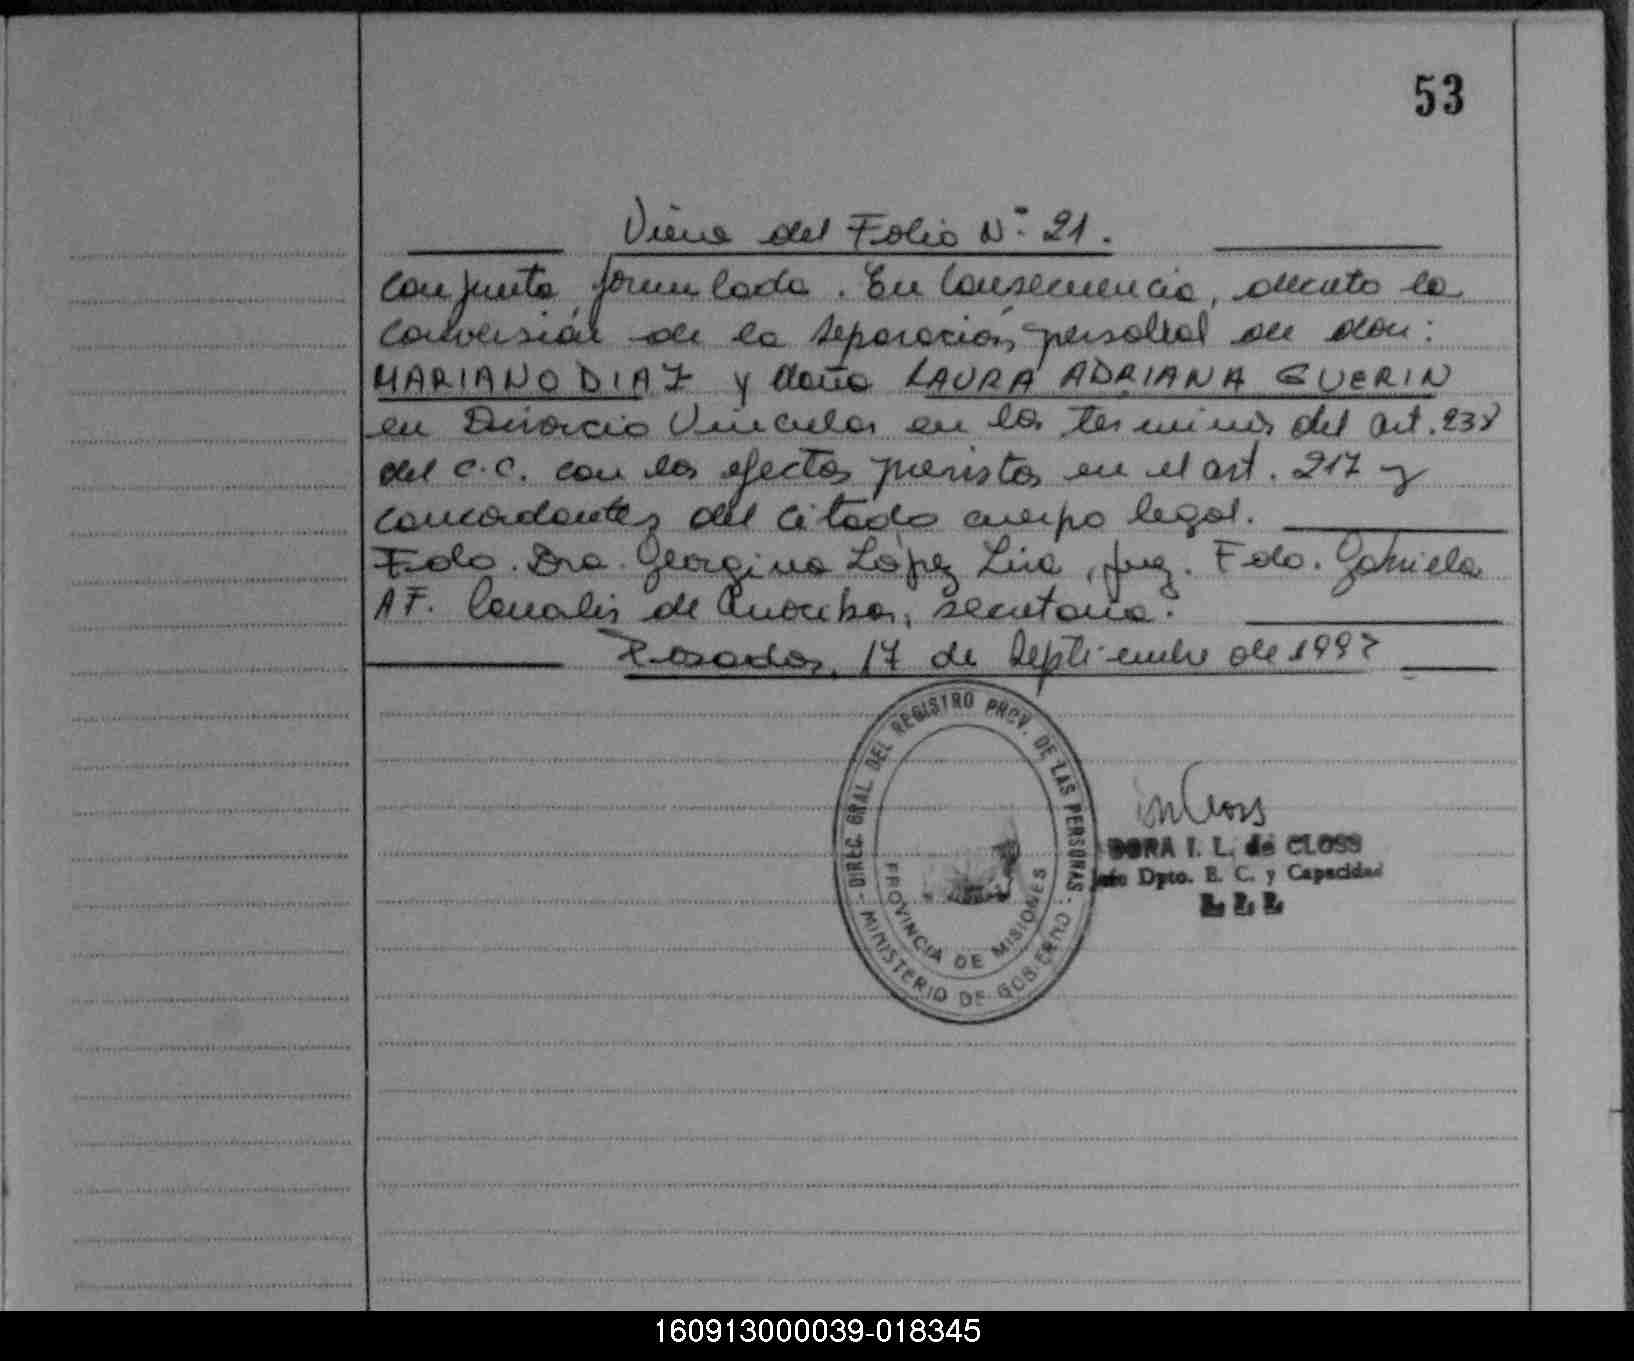 53
Viene del Folio Nº 21.
conjunta formulada. En Consecuencia, decreto la
conversión de la separación personal de don:
MARIANO DIAZ y doña LAURA ADRIANA GUERIN
en Divorcio Vincular en los terminis del art. 238
del C.C. con los efectos previstos en el art. 217 y
concordantes del citado cuerpo legal.
Fdo. Dra. Georgina López Liva, Juez. Fdo. Gabriela
AF. Canalis de, secretaria.
Posadas, 17 de Septiembre de 1997
- DIREC. GRAL. DEL REGISTRO PROV. DE LAS PERSONAS -
MINISTERIO DE GOBIERNO
PROVINCIA DE MISIONES
DORA I. L. de CLOSS
Jefe Dpto. E. C. y Capacidad
160913000039-018345